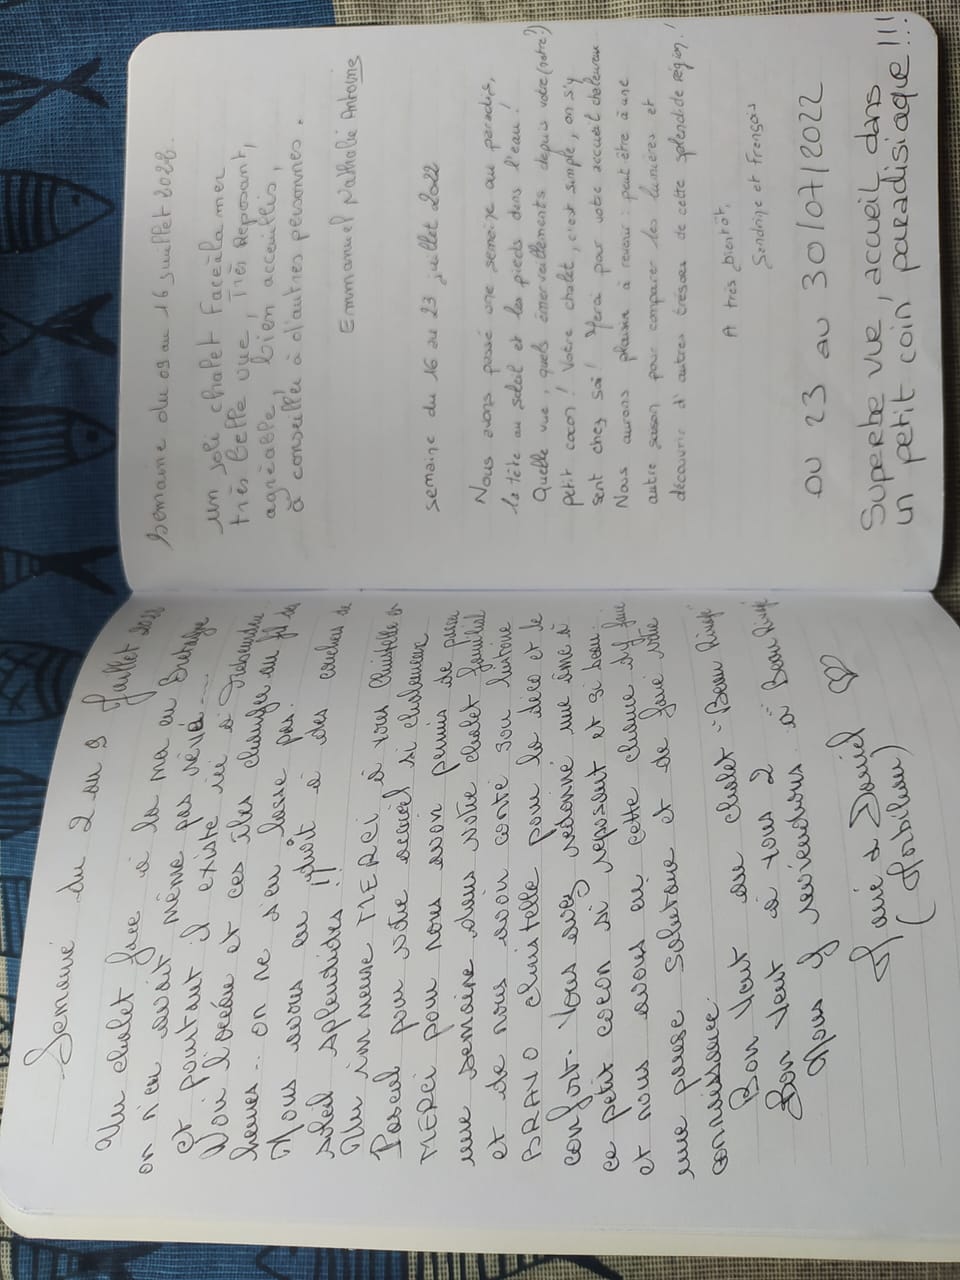 Semaine du 2 au 9 Juillet 2022
Un chalet face à la mer en Bretagne
on n'en avait même pas rêvé ...
et pourtant il existe ici à Trébeurden
Voir l'océan et ces îles changer au fil des
heures... on ne s'en lasse pas.
Nous avons eu droit à des couchers de
soleil splendides !!
Un immense MERCI à vous Christelle et
Pascal pour votre accueil si chaleureux
MERCI pour nous avoir permis de passer
une semaine dans votre chalet familial
et de nous avoir conté son histoire
BRAVO Christelle pour la déco et le
confort. Vous avez redonné une âme à
ce petit cocon si reposant et si beau.
et nous avons eu cette chance d'y faire
une pause salutaire et de faire votre
connaissance.
Bon vent au chalet "Beau Rivage"
Bon vent à vous 2
Nous y reviendrons à "Beau Rivage"
Marie & Daniel ♡
(Morbihan)
Semaine du 09 au 16 juillet 2022.
un joli chalet face à la mer
très belle vue, Très Reposant,
agréable, bien acceuillis,
à conseillé à d'autres personnes.
Emmanuel Nathalie Antoine
semaine du 16 au 23 juillet 2022
Nous avons passé une semaine au paradis,
la tête au soleil et les pieds dans l'eau !
Quelle vue, quels émerveillements depuis votre (notre?)
petit cocon ! Votre chalet, c'est simple, on s'y
sent chez soi ! Merci pour votre accueil chaleureux.
Nous aurons plaisir à revenir : peut être à une
autre saison pour comparer les lumières et
découvrir d'autres trésors de cette splendide région !
A très bientôt,
Sandrine et François
DU 23 au 30/07/2022
SUPERBE VUE, accueil dans
un petit coin paradisiaque !!!